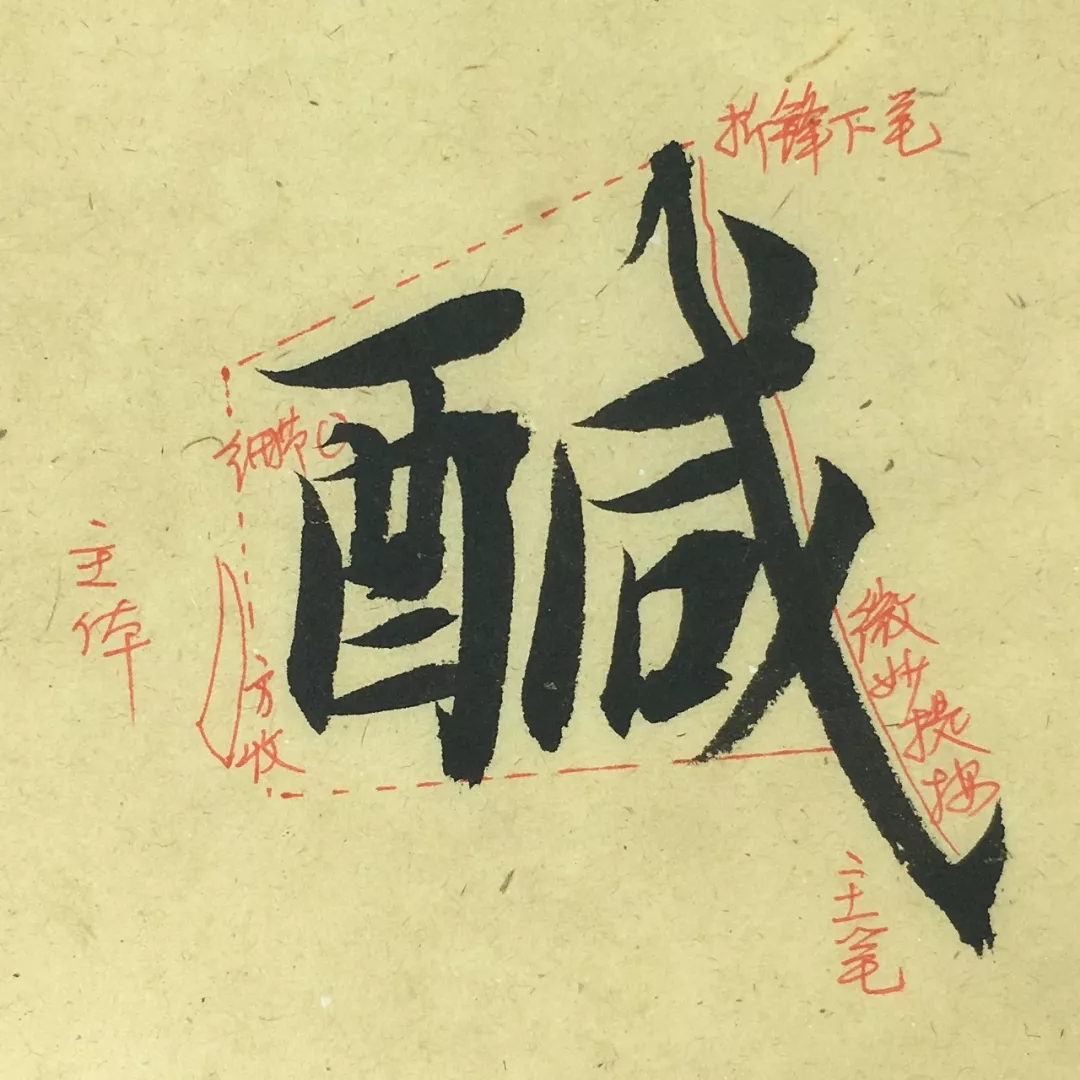 折锋下笔
醎
细节
主体
方收
微妙提按
主笔